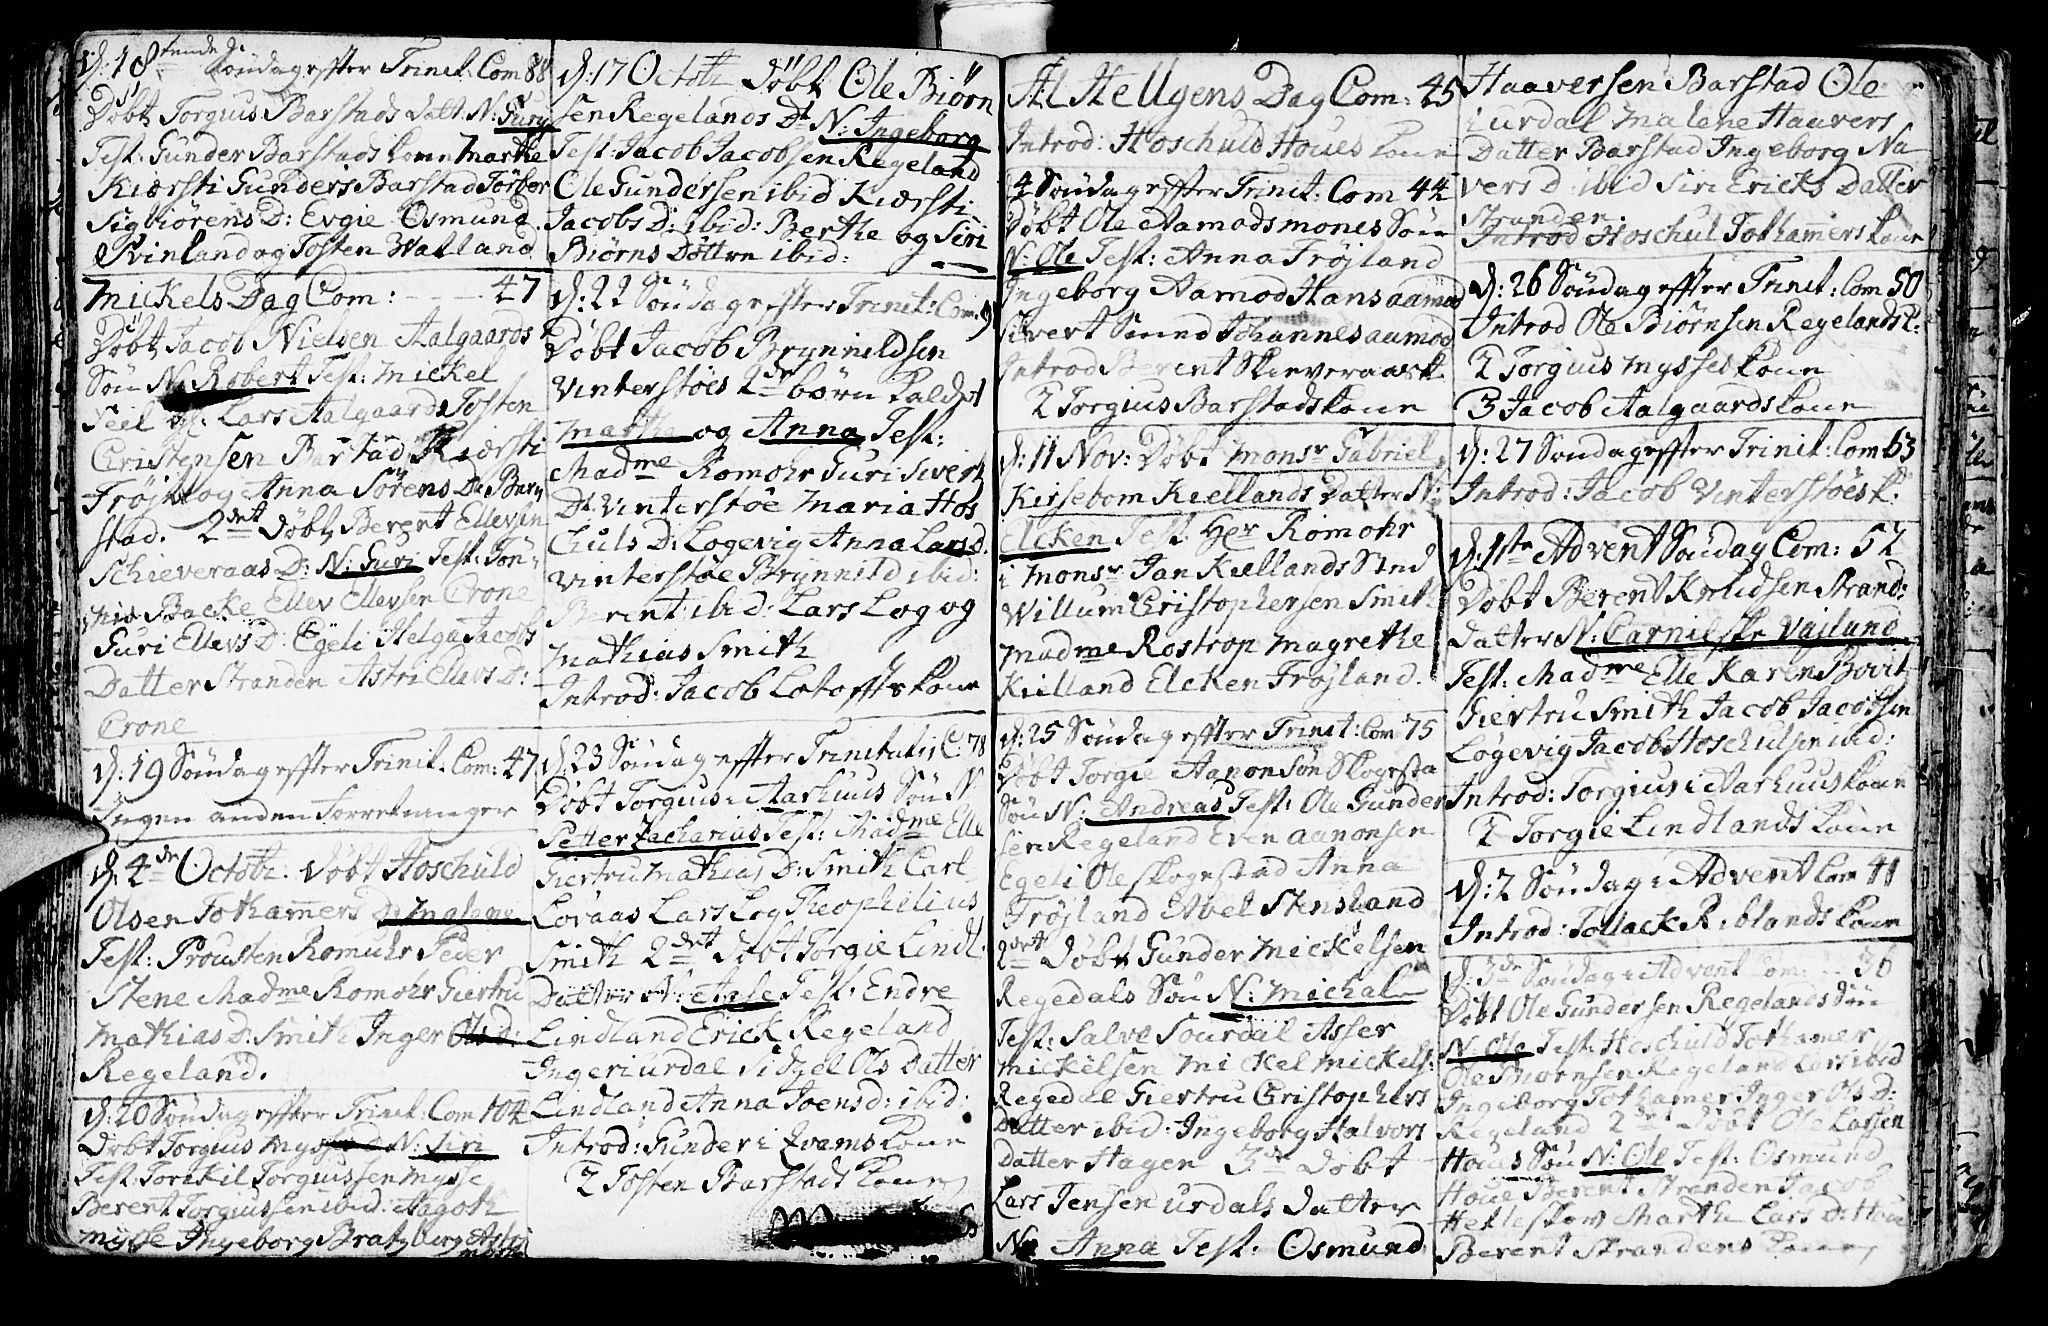 d: 18tende Søndag effter Trinit: Com 88
Døbt Torgius Barstads Datt: N: Gury
Test: Gunder Barstads kone Marthe
Kiersti Gunders Barstad Torbor
Sigbiørens D: Evgie Osmund
Svinland og Tosten Watland
Mickels Dag Com: - - - 47
Døbt Jacob Nielsen Aalgaards
Søn N: Robert Test: Mickel
Seel Lars Aalgaard Tosten
Christensen Barstad Kiersti
Frøjl og Anna Sørens D: Bar
stad. 2det Døbt Berent Ellevsen
Schieveraas D: N: Guri Test: Tøn
nis Backe Ellev Ellevsen Crone
Guri Ellevs D: Egeli Helga Jacobs
Datter Stranden Astri Ellevs D:
Crone
d: 19 Søndag effter Trinit. Com: 47
Ingen anden Forretninger
d: 4de Octobr: Døbt Hoschuld
Olsen Tothamers D: Malene
Test: Prousten Romuhr Peder
Stene Madme Romohr Giertru
Mathias D: Smith Inger Ols D:
Regeland.
d: 20 Søndag effter Trinit: Com 104
Døbt Torgius Mysses D N: Siri
Test: Torkil Torgiussen Mysse
Berent Torgiussen ibid: Aagoth
Mysse Ingeborg Bratzberg Astri
Mysse
d: 17 Octobr Døbt Ole Biørn
sen Regelands Dt N: Ingeborg
Test: Jacob Jacobsen Regeland
Ole Gundersen ibid Kiersti
Jacobs D: ibid: Berthe og Siri
Biørns Døttre ibid:
d: 22 Søndag effter Trinit: Com: 9
Døbt Jacob Brynnildsen
Vinterstøes 2de børn kaldet
Marthe og Anna Test:
Madme Romohr Guri Sivert
Dt Vinterstøe Maria Hos
chuls D: Logevig Anna Lars D.
Vinterstøe Brynnild ibid:
Berent ibid: Lars Log og
Mathias Smith
Introd: Jacob Lotoffts kone
d: 23 Søndag effter Trinitatis C: 78
Døbt Torgius i Aarhuus Søn N
Petter Zacharias Test: Madme Elle
Giertru Mathias D: Smith Carl
Loraas Lars Log Theophilius
Smith 2det Døbt Torgie Lindl.
Datter N: Aase Test: Endre
Lindland Erick Regeland
Inger i urdal Sidzel Ols Datter
Lindland Anna Joens D: ibid:
Introd: Gunder i Qvams kone
2 Tosten Barstads kone
Al Hellgens Dag Com: 45
Introd: Hoschuld Houes kone
24 Søndag effter Trinit: Com 44
Døbt Ole Aamodsmones Søn
N: Ole Test: Anna Frøjland
Ingeborg Aamod Hans aamod
Sivert Sunnd Johannes aamod
Introd Berent Skieveraas k.
2 Torgius Barstads kone
d: 11 Nov: Døbt Monsr Gabriel
Kirsebom Kiellands Datter N:
Elcken Test Her Romohr
i Monsr Jan Kiellands Sted
Willum Christophersen Smith
Madme Rostrop Magrethe
Kielland Elcken Frøjland.
d: 25 Søndag effter Trinit: Com 75
Døbt Torgie Aanonsøn Skogesta
Søn N: Andreas Test: Ole Gunder
sen Regeland Even Aanonsen
Egeli Ole Skogestad Anna
Frøjland Esbel Stensland
2det Døbt Gunder Mickelsen
Regedals Søn N: Michal
Test: Salve Sourdal Asser
Mickelsen Mickel Mickels:
Regedal Giertru Christophers
Datter ibid: Ingeborg Halvors
Datter Hagen 3de Døbt
Lars Jensen urdals Datter
N: Anna Test: Osmund
Haaversen Barstad Ole
i urdal Malene Haavers
Datter Barstad Ingeborg Na
vers D: ibid Siri Ericks Datter
Stranden.
Introd Hoschul Tothamers kone
d: 26 Søndag effter Trinit: Com 50
Introd Ole Biørnsen Regelands k:
2 Torgius Mysses kone
3 Jacob Aalgaards kone
d: 27 Søndag effter Trinit: Com 63
Introd: Jacob Vinterstøes k:
d: 1ste Advent Søndag Com: 52
Døbt Berent Knudsen Strand:
Datter N: Carnilske Vajland
Test: Madme Elle Karen Bovit
Giertru Smith Jacob Jacobsen
Løgevig Jacob Hoschulsen ibid:
Introd: Torgius i Aarhuus kone
2 Torgie Lindlands kone
d: 2 Søndag i Advent Com 41
Introd: Tollack Riblands kone
d: 3de Søndag i Advent Com: - 36
Døbt Ole Gundersen Regelands Søn
N: Ole Test: Hoschuld Tothamer
Ole Biørnsen Regeland Lars ibid
Ingeborg Tothamer Inger Ols D:
Regeland 2det Døbt Ole Larsen
Houes Søn N: Ole Test: Osmund
Houe Berent Stranden Jacob
Helleskov Marthe Lars D: Houe
Berent Strandens kone